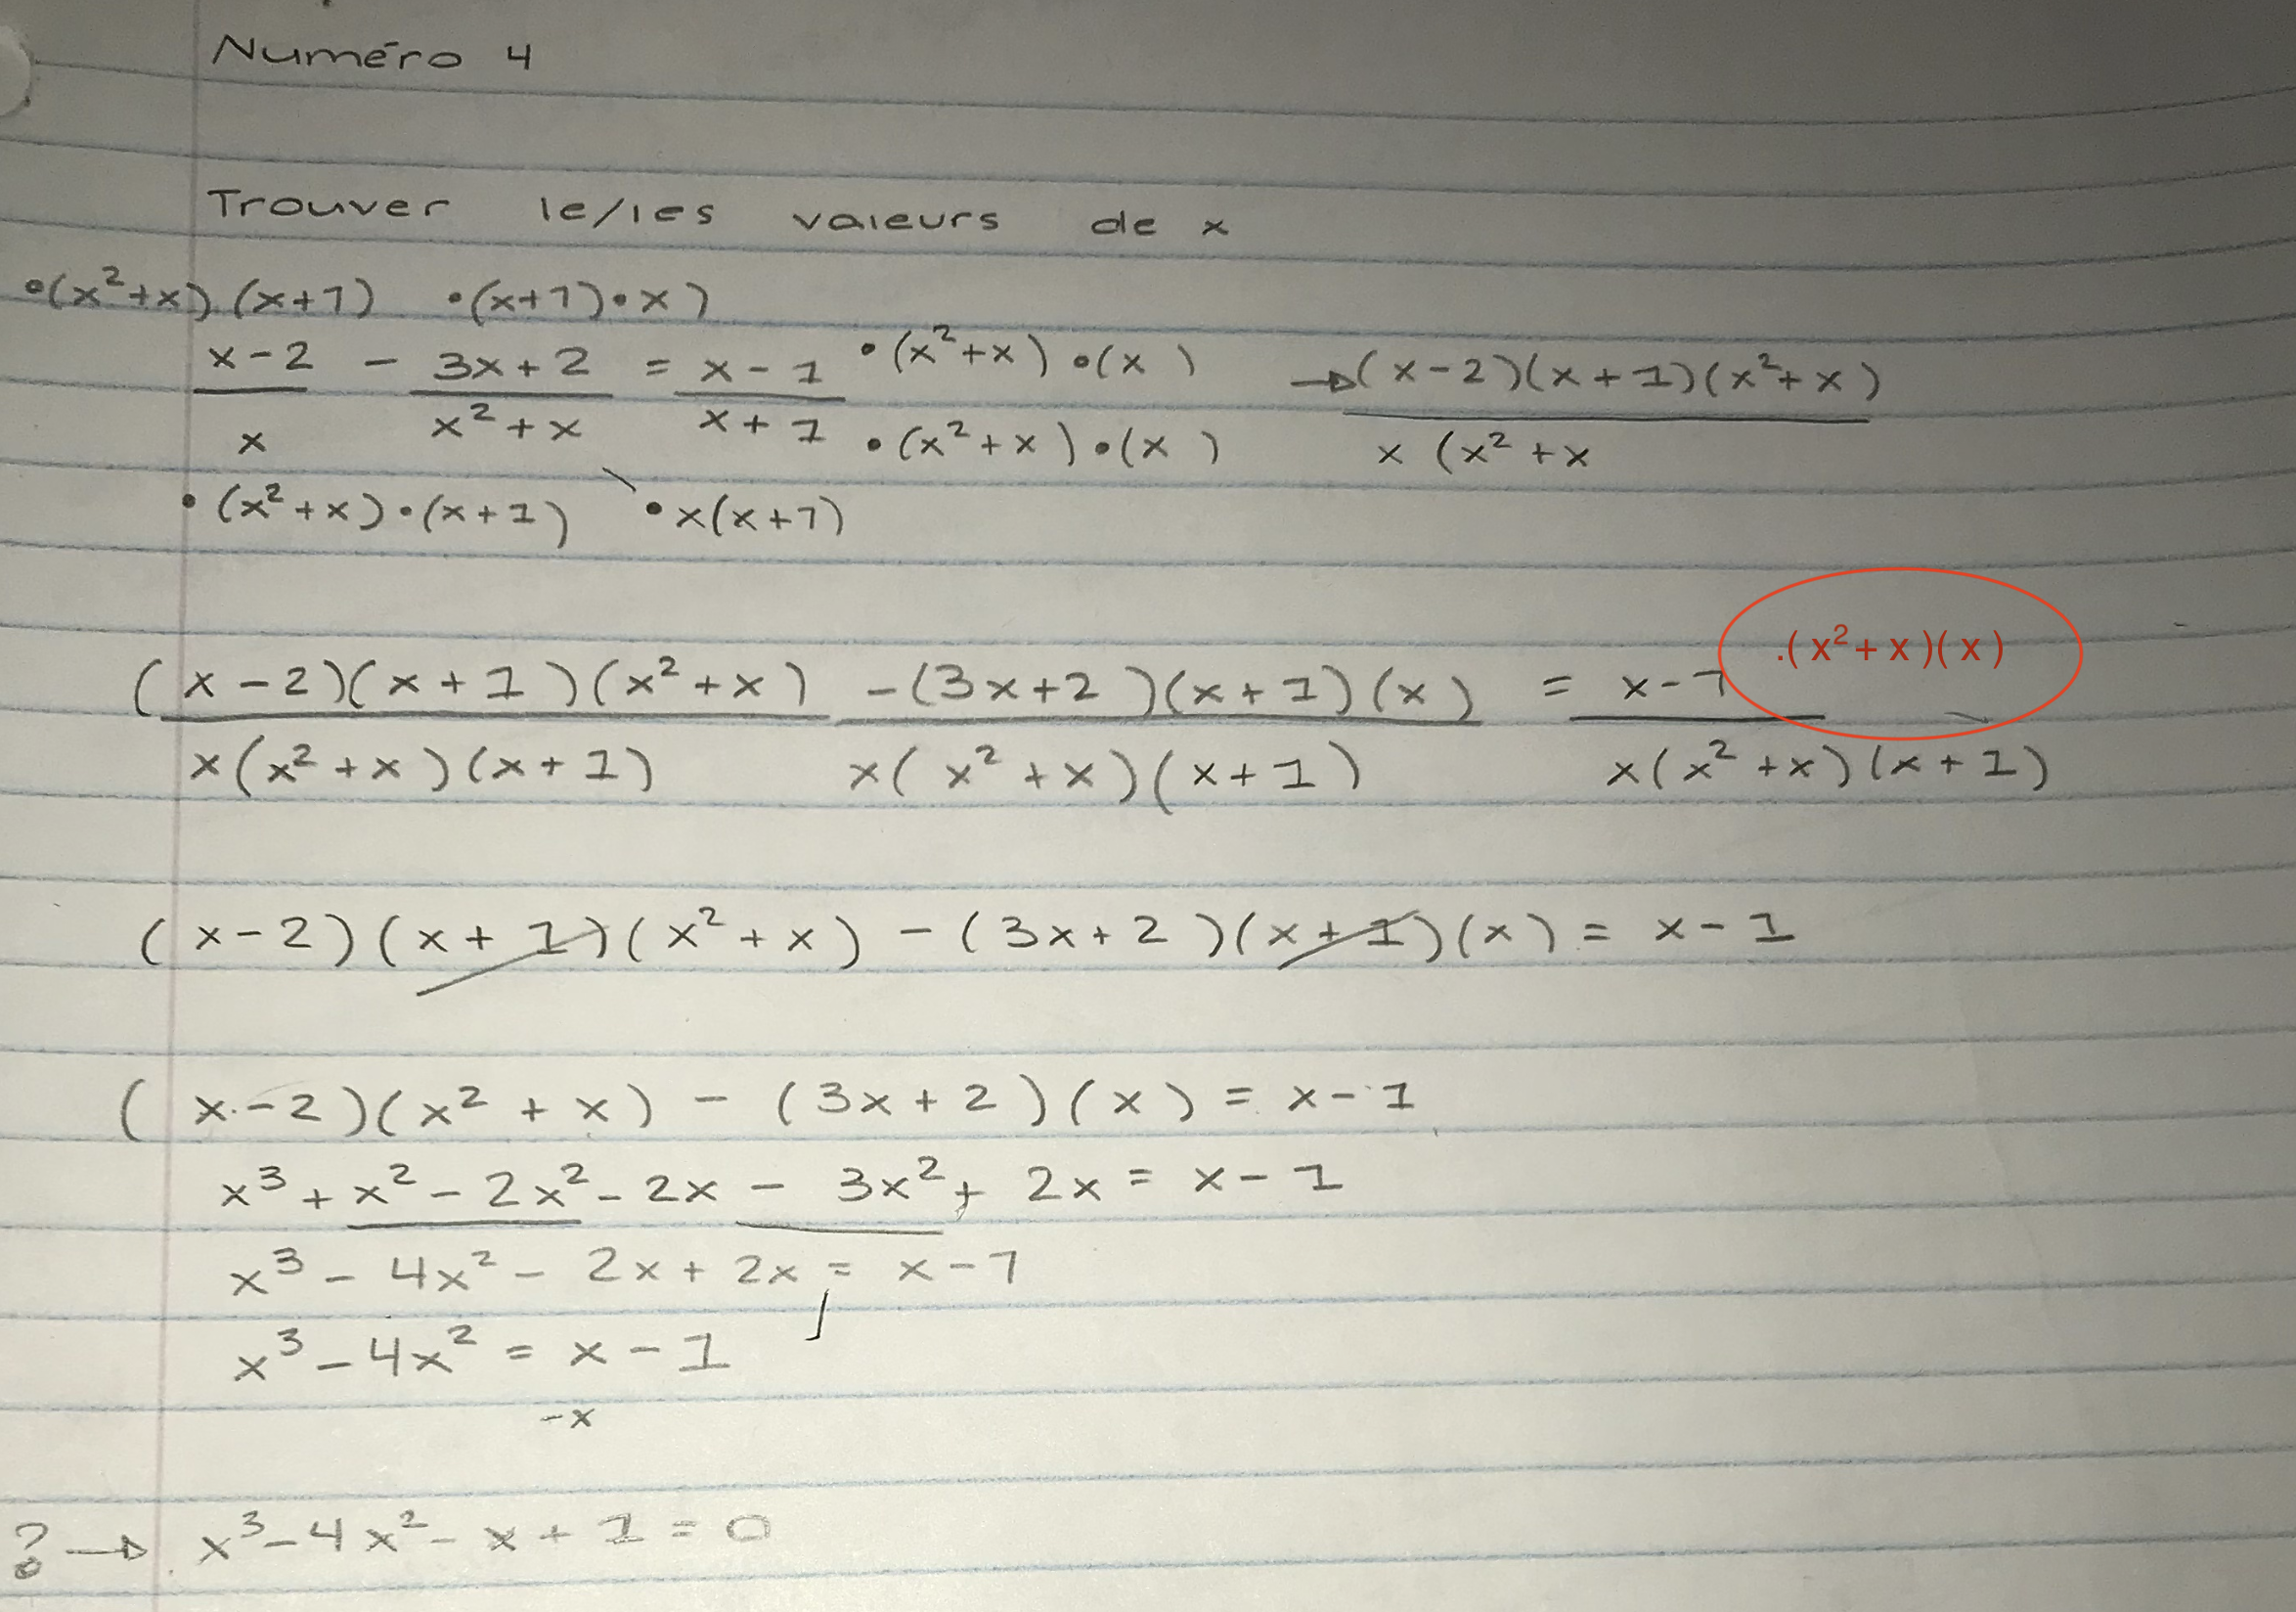 Numéro 4
Trouver le/les valeurs de x
•(x²+x).(x+1) •(x+1)•x)
x-2 - 3x+2 = x-1 •(x²+x)•(x) →(x-2)(x+1)(x²+x)
x x²+x x+1 •(x²+x)•(x) x(x²+x
•(x²+x)•(x+1) •x(x+1)
.(x²+x)(x)
(x-2)(x+1)(x²+x) -(3x+2)(x+1)(x) = x-1
x(x²+x)(x+1) x(x²+x)(x+1) x(x²+x)(x+1)
(x-2)(x+1)(x²+x) - (3x+2)(x+1)(x) = x-1
(x-2)(x²+x) - (3x+2)(x) = x-1
x³+x²-2x²-2x-3x²+2x = x-1
x³-4x²-2x+2x = x-1
x³-4x² = x-1
-x
? → x³-4x²-x+1=0